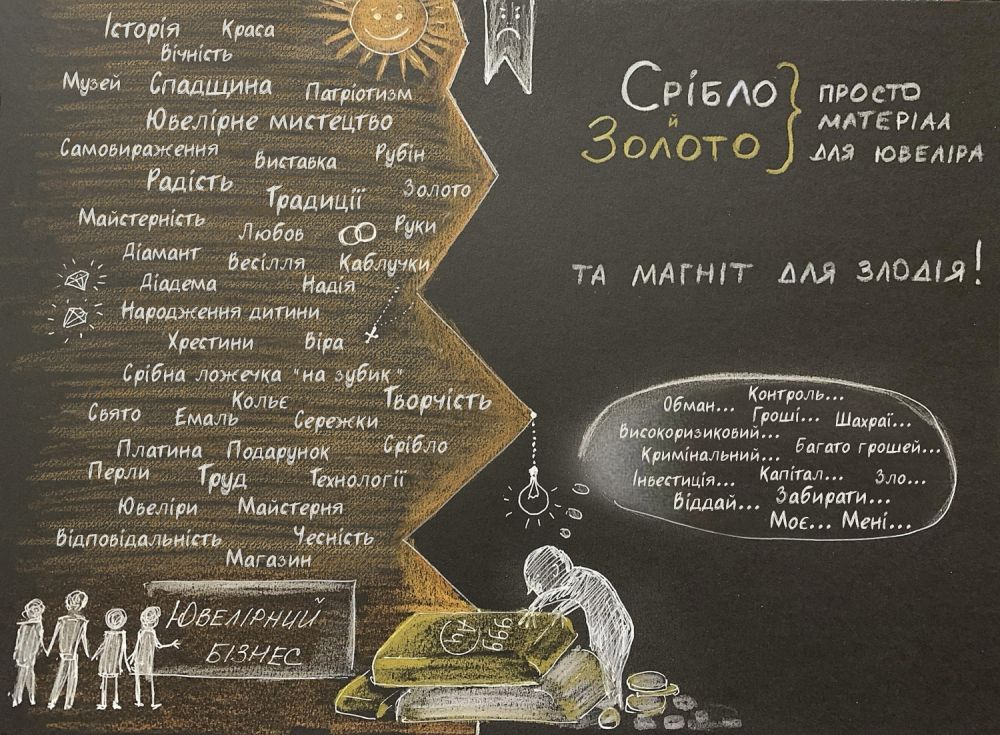 Історія Краса
Вічність
Музей Спадщина Патріотизм
Ювелірне мистецтво
Самовираження Виставка Рубін
Радість Традиції Золото
Майстерність Любов Руки
Діамант Весілля Каблучки
Діадема Надія
Народження дитини
Хрестини Віра
Срібна ложечка "на зубик"
Свято Емаль Кольє Сережки Творчість
Платина Подарунок Срібло
Перли Труд Технології
Ювеліри Майстерня
Відповідальність Чесність
Магазин
Ювелірний
бізнес
Срібло
й
Золото
просто
матеріал
для ювеліра
та магніт для злодія!
Обман... Контроль...
Гроші... Шахраї...
Високоризиковий...
Кримінальний... Багато грошей...
Інвестиція... Капітал... Зло...
Віддай... Забирати...
Моє... Мені...
999
Au